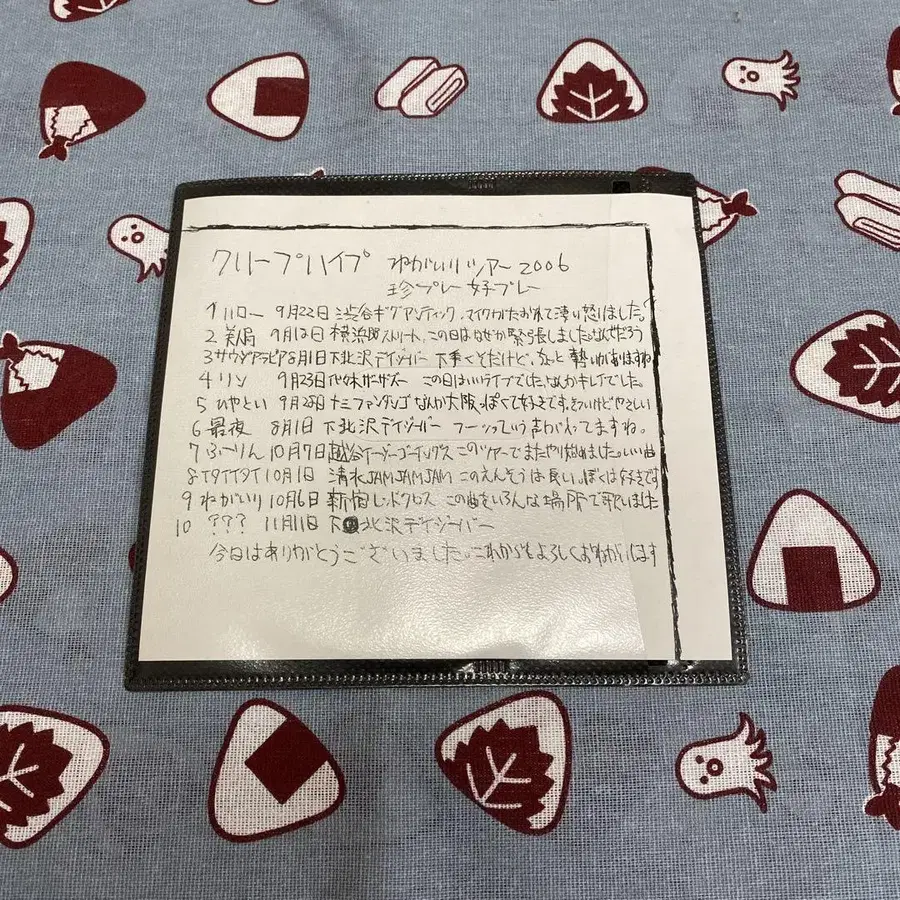 クリープハイプ ねがいりツアー2006
珍プレー好プレー
1 ハロー 9月22日 渋谷ギグアンティック、マイクがたおれて凄い怒りました。
2 美人局 9月12日 横浜 ストリート、この日はなぜか緊張しましたなんだろう
3 サウジアラビア 8月1日 下北沢デイジーバー 下手くそだけど、勢いがありますね
4 リン 9月23日 ガーザズー この日はいいライブでした。なんかキレイでした。
5 ひやとい 9月28日 十三ファンダンゴ なんか大阪っぽくて好きです。きついけどやさしい
6 最夜 8月1日 下北沢デイジーバー フーッっていう声がわってますね。
7 ふーりん 10月7日 越谷イージーゴーイングス このツアーでまたやり始めました。いい曲
8 イタイイタイ 10月1日 清水JAMJAMJAM このえんそうは長い。ぼくは好きです
9 ねがいり 10月6日 新宿レッドクロス この曲をいろんな場所で歌いました
10 ??? 11月1日 下北沢デイジーバー
今日はありがとうございました。これからもよろしくおねがいします